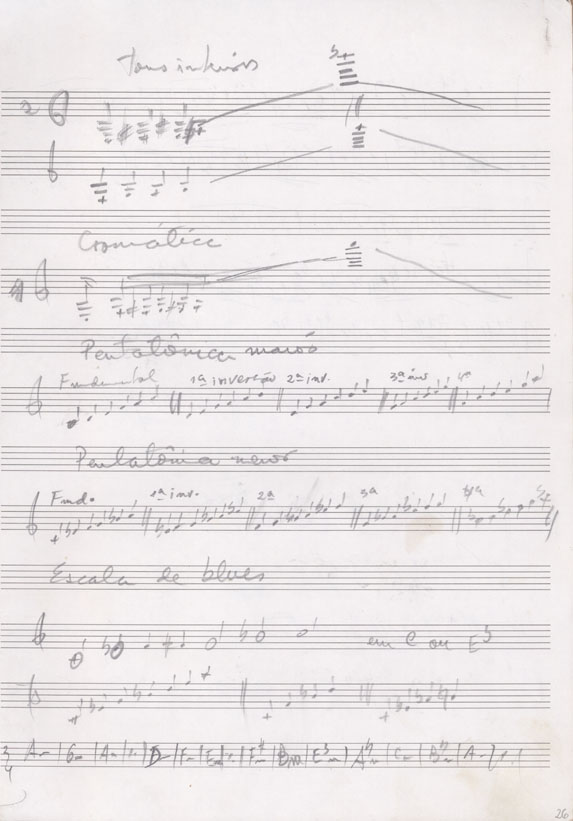 Tons inteiros
Cromática
Pentatônica maior
Fundamental 1ª inversão 2ª inv. 3ª inv 4ª
Pentatônica menor
Fund. 1ª inv. 2ª 3ª 4ª
Escala de blues
em C ou E♭
3/4 A- | G- | A- | ٪ | D- | F- | E- | ٪ | F# | B | E♭ | A | C- | B | A- | ٪ |
26